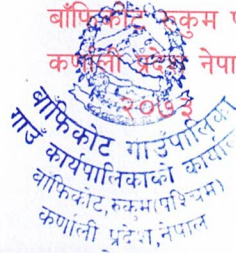 बाँफिकोट रुकुम प
कर्णाली प्रदेश नेपा
२०७३
बाँफिकोट गाउँपालिका
गाउँ कार्यपालिकाको कार्याल
बाँफिकोट, रुकुम(पश्चिम)
कर्णाली प्रदेश, नेपाल